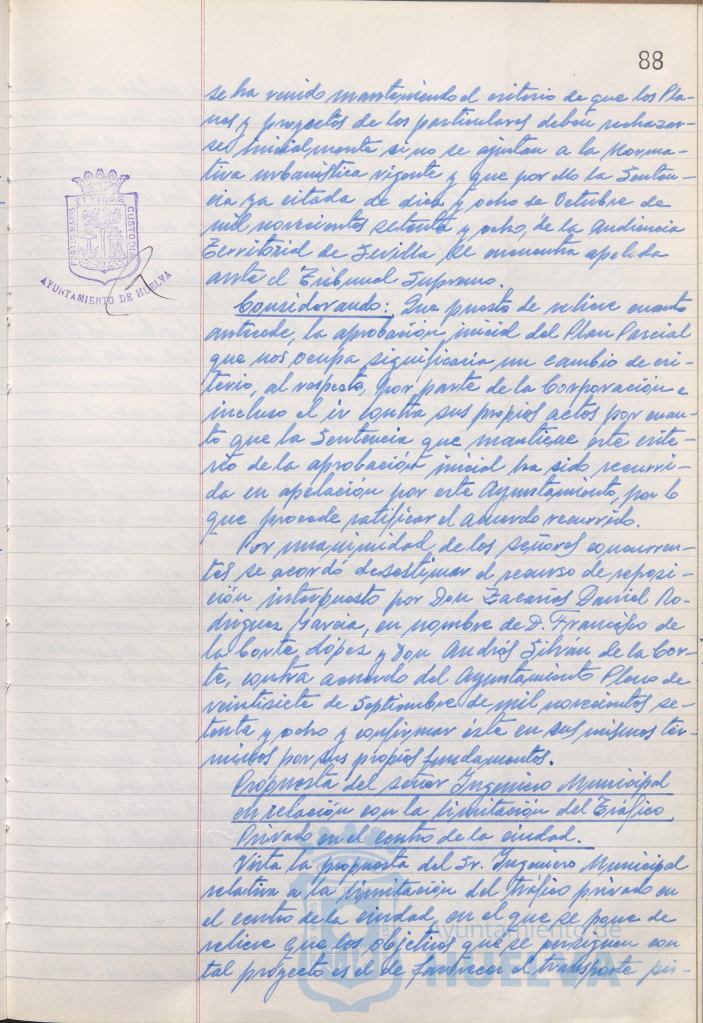 88
se ha venido manteniendo el criterio de que los Pla-
nes y proyectos de los particulares deben rechazar-
se inicialmente si no se ajustan a la Norma-
tiva urbanística vigente y que por ello la Senten-
cia ya citada de diez y ocho de Octubre de
mil novecientos setenta y ocho, de la Audiencia
Territorial de Sevilla se encuentra apelada
ante el Tribunal Supremo.
Considerando: Que puesto de relieve cuanto
antecede, la aprobación inicial del Plan Parcial
que nos ocupa significaría un cambio de cri-
terio, al respecto, por parte de la Corporación e
incluso el ir contra sus propios actos por cuan-
to que la Sentencia que mantiene este crite-
rio de la aprobación inicial ha sido recurri-
da en apelación por este Ayuntamiento, por lo
que procede ratificar el acuerdo recurrido.
Por unanimidad de los señores concurren-
tes se acordó desestimar el recurso de reposi-
ción interpuesto por Don Zacarías Daniel Ro-
dríguez García, en nombre de D. Francisco de
la Corte López y Don Andrés Silván de la Cor-
te, contra acuerdo del Ayuntamiento Pleno de
veintisiete de Septiembre de mil novecientos se-
tenta y ocho y confirmar éste en sus mismos tér-
minos por sus propios fundamentos.
Propuesta del señor Ingeniero Municipal
en relación con la limitación del Tráfico
Privado en el centro de la ciudad.
Vista la propuesta del Sr. Ingeniero Municipal
relativa a la limitación del tráfico privado en
el centro de la ciudad, en el que se pone de
relieve que los objetivos que se persiguen con
tal proyecto es el de favorecer el transporte pú-
PORTUS MARIS
ET TERRAE
CUSTODIA
AYUNTAMIENTO DE HUELVA
Ayuntamiento de
HUELVA